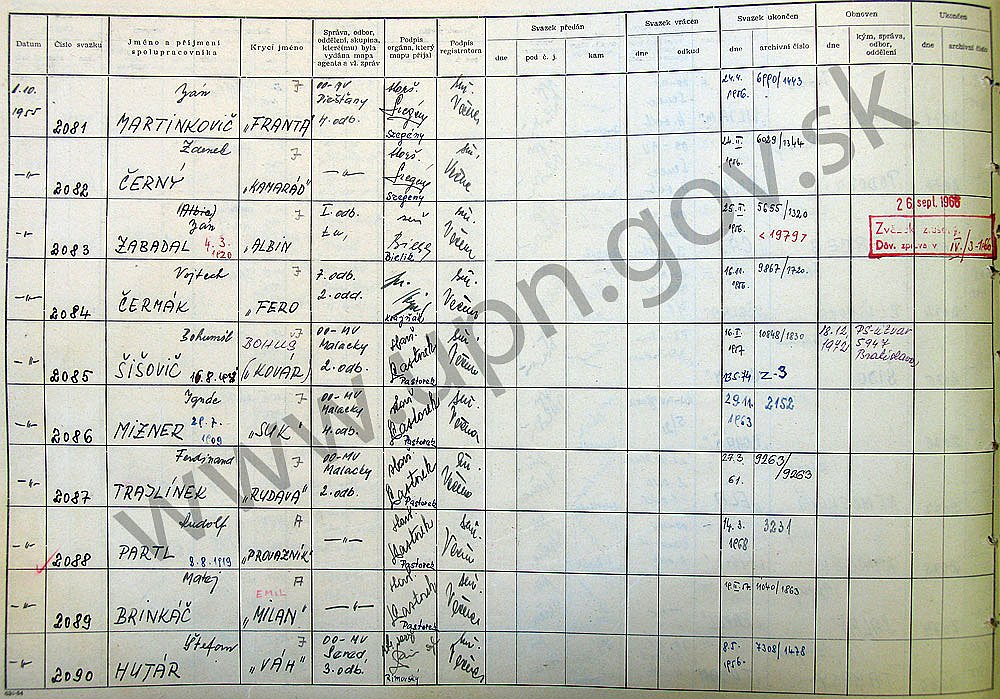 Datum
Číslo svazku
Jméno a příjmení
spolupracovníka
Krycí jméno
Správa, odbor,
oddělení, skupina,
kterému byla
vydána mapa
agenta a vl. zpráv
Podpis
orgána, který
mapu přijal
Podpis
registratora
Svazek předán
dne
pod č. j.
kam
Svazek vrácen
dne
odkud
Svazek ukončen
dne
archivní číslo
Obnoven
dne
kým, správa,
odbor,
oddělení
Ukončen
dne
archivní číslo
1.10.
1955
2081
Ján
MARTINKOVIČ
7
„FRANTA"
OO-MV
Piešťany
4. odb.
Szegény
24.4.
1956.
6990/1443
-"-
2082
Zdenek
ČERNÝ
7
„KAMARÁD"
-"-
Szegény
24. II.
1956.
6029/1344
-"-
2083
(Albín)
Ján
ZABADAL
4.3.
1920
7
„ALBÍN
I. odb.
Bielik
25. I.
1956.
5655/1320
<1979>
26. sept. 1966
IV./3-
-"-
2084
Vojtech
ČERMÁK
7
„FERO
7. odb.
2. odd.
16.11.
1956.
9867/1720.
-"-
2085
Bohumil
ŠIŠOVIČ
7
BOHUŠ
(„KOVÁR)
OO-MV
Malacky
2. odb.
Pastorek
16. I.
1957
10848/1830
13.5.74
Z-3
18.12.
1972
PS-útvar
5947
Bratislava
-"-
2086
MIZNER
29.7.
1909
7
„SUK"
OO-MV
Malacky
4. odb.
Pastorek
29.11.
1963
2152
-"-
2087
Ferdinand
TRAJLÍNEK
7
„RYDAVA"
OO-MV
Malacky
2. odb.
Pastorek
27.3.
61.
9263/9263
-"-
2088
Rudolf
PARTL
8.8.1919
A
„PROVAZNÍK"
-"-
Pastorek
14.3.
1968
3231
-"-
2089
Matej
BRINKÁČ
A
EMIL
„MILAN"
-"-
Pastorek
11040/1863
-"-
2090
Štefan
HUTÁR
7
„VÁH"
OO-MV
Senec
3. odb.
Rimovský
8.5.
1956.
7308/1478
www.upn.gov.sk